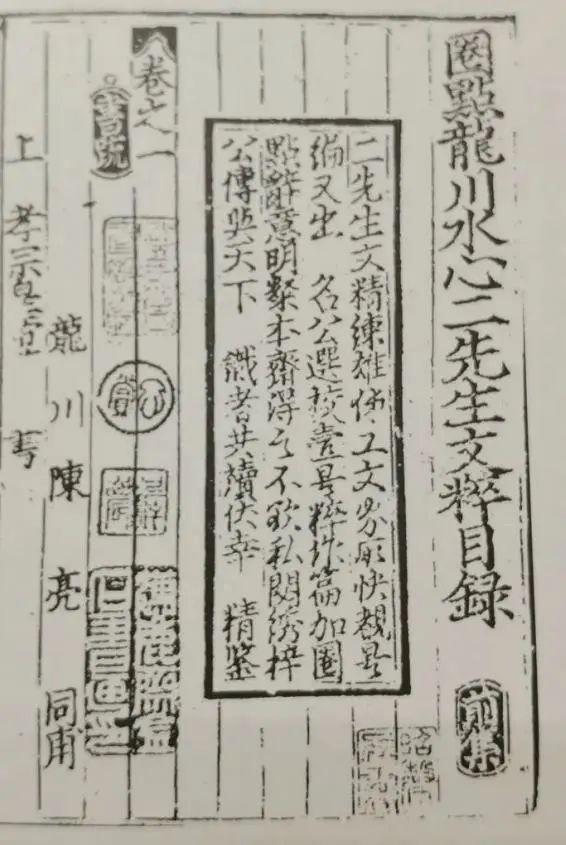 圈點龍川水心二先生文粹目録
前集
二先生文精練雄偉工文者願快覩是
編又出 名公選校壹是粹此篇加圈
點辭意明粲本齋得之不欲私閟綉梓
公傳與天下 識者共讀伏幸 精鑒
卷之一
書疏
龍川陳亮同甫
上 孝宗皇帝 書